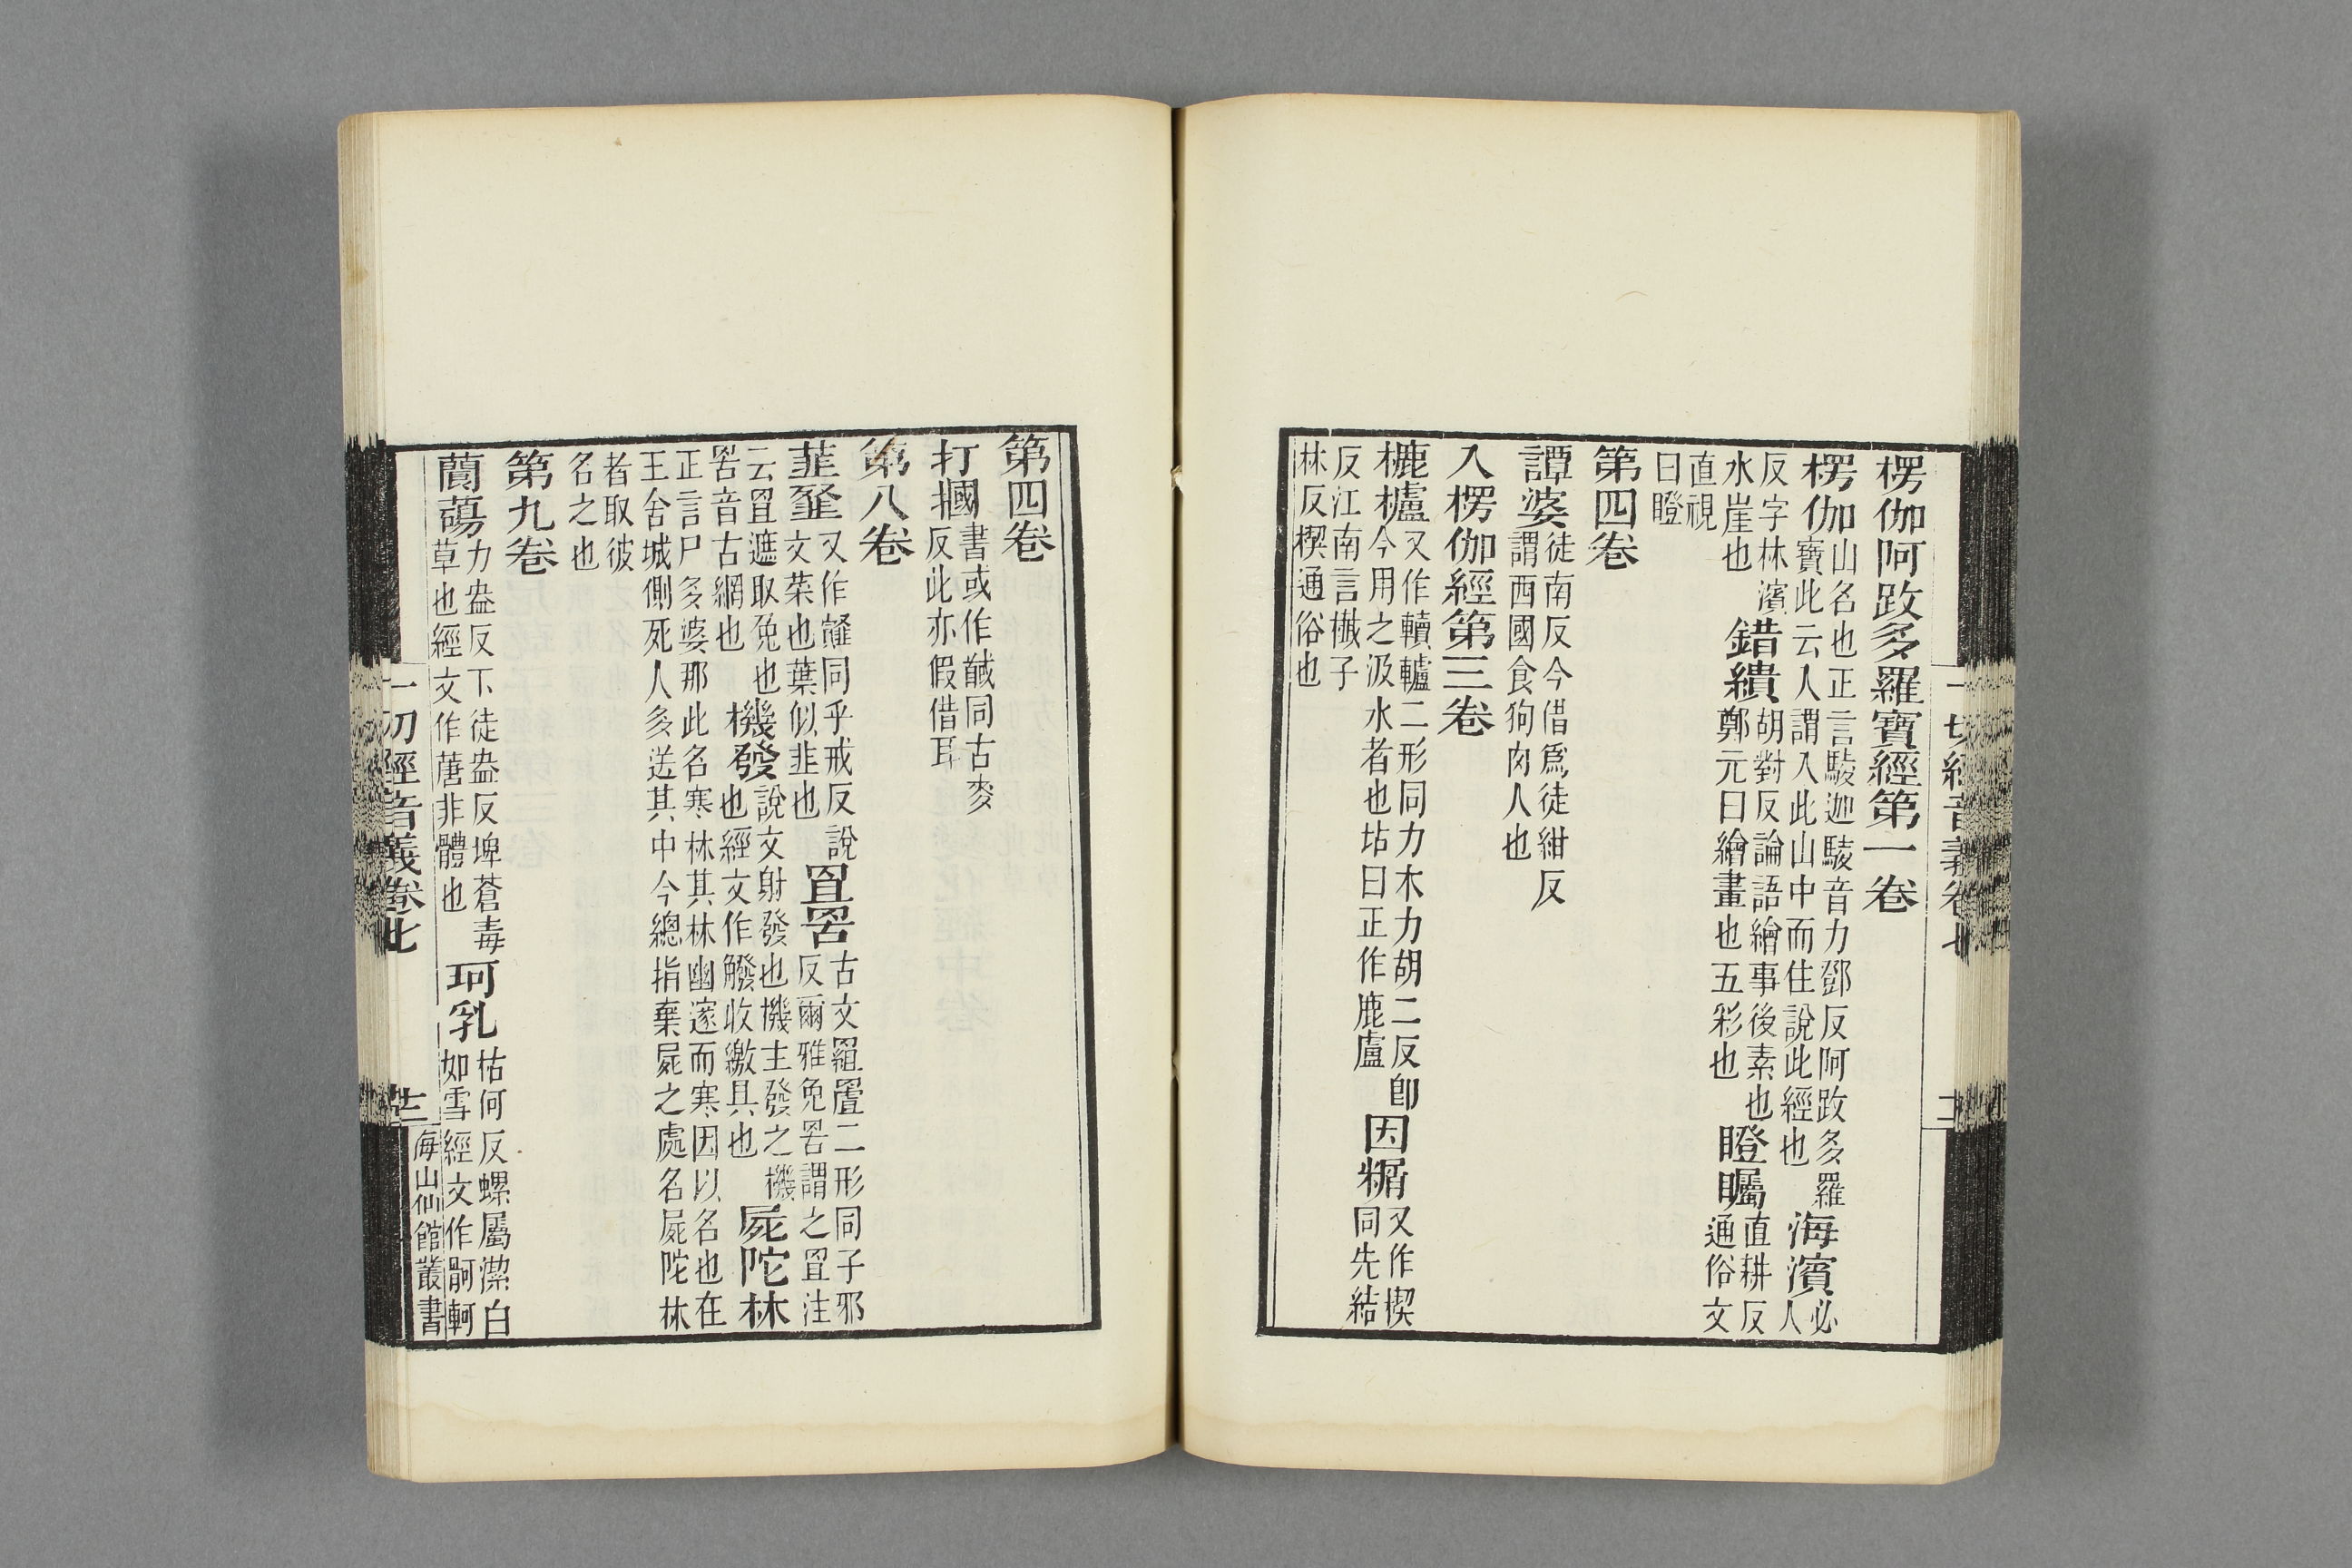 楞伽阿跋多羅寶經第一卷
楞伽山名也正言駿迦駿音力鄧反阿跋多羅
寶此云人謂入此山中而住說此經也海濱必
人反字林濱
水崖也錯繢胡對反論語繪事後素也
鄭元曰繪畫也五彩也瞪矚直耕反
通俗文
直視
曰瞪
第四卷
譚婆徒南反今借爲徒紺反
謂西國食狗肉人也
入楞伽經第三卷
樚櫨又作轒轤二形同力木力胡二反卽
今用之汲水者也坫曰正作鹿盧因㮞又作楔
同先結
反江南言櫼子
林反楔通俗也
第四卷
打摑書或作馘同古麥
反此亦假借耳
第八卷
韮𩐎又作䪥同乎戒反說
文菜也葉似韭也罝罟古文罝䍤二形同子邪
反爾雅兔罟謂之罝注
云罝遮取兔也
罟音古網也機發說文射發也機主發之機
也經文作觼收繳具也屍陀林
正言尸多婆那此名寒林其林幽邃而寒因以名也在
王舍城側死人多送其中今總指棄屍之處名屍陀林
者取彼
名之也
第九卷
蘭蕩力盎反下徒盎反埤蒼毒
草也經文作蓎非體也珂乳枯何反螺屬潔白
如雪經文作𩨗軻
一切經音義卷七
海山仙館叢書